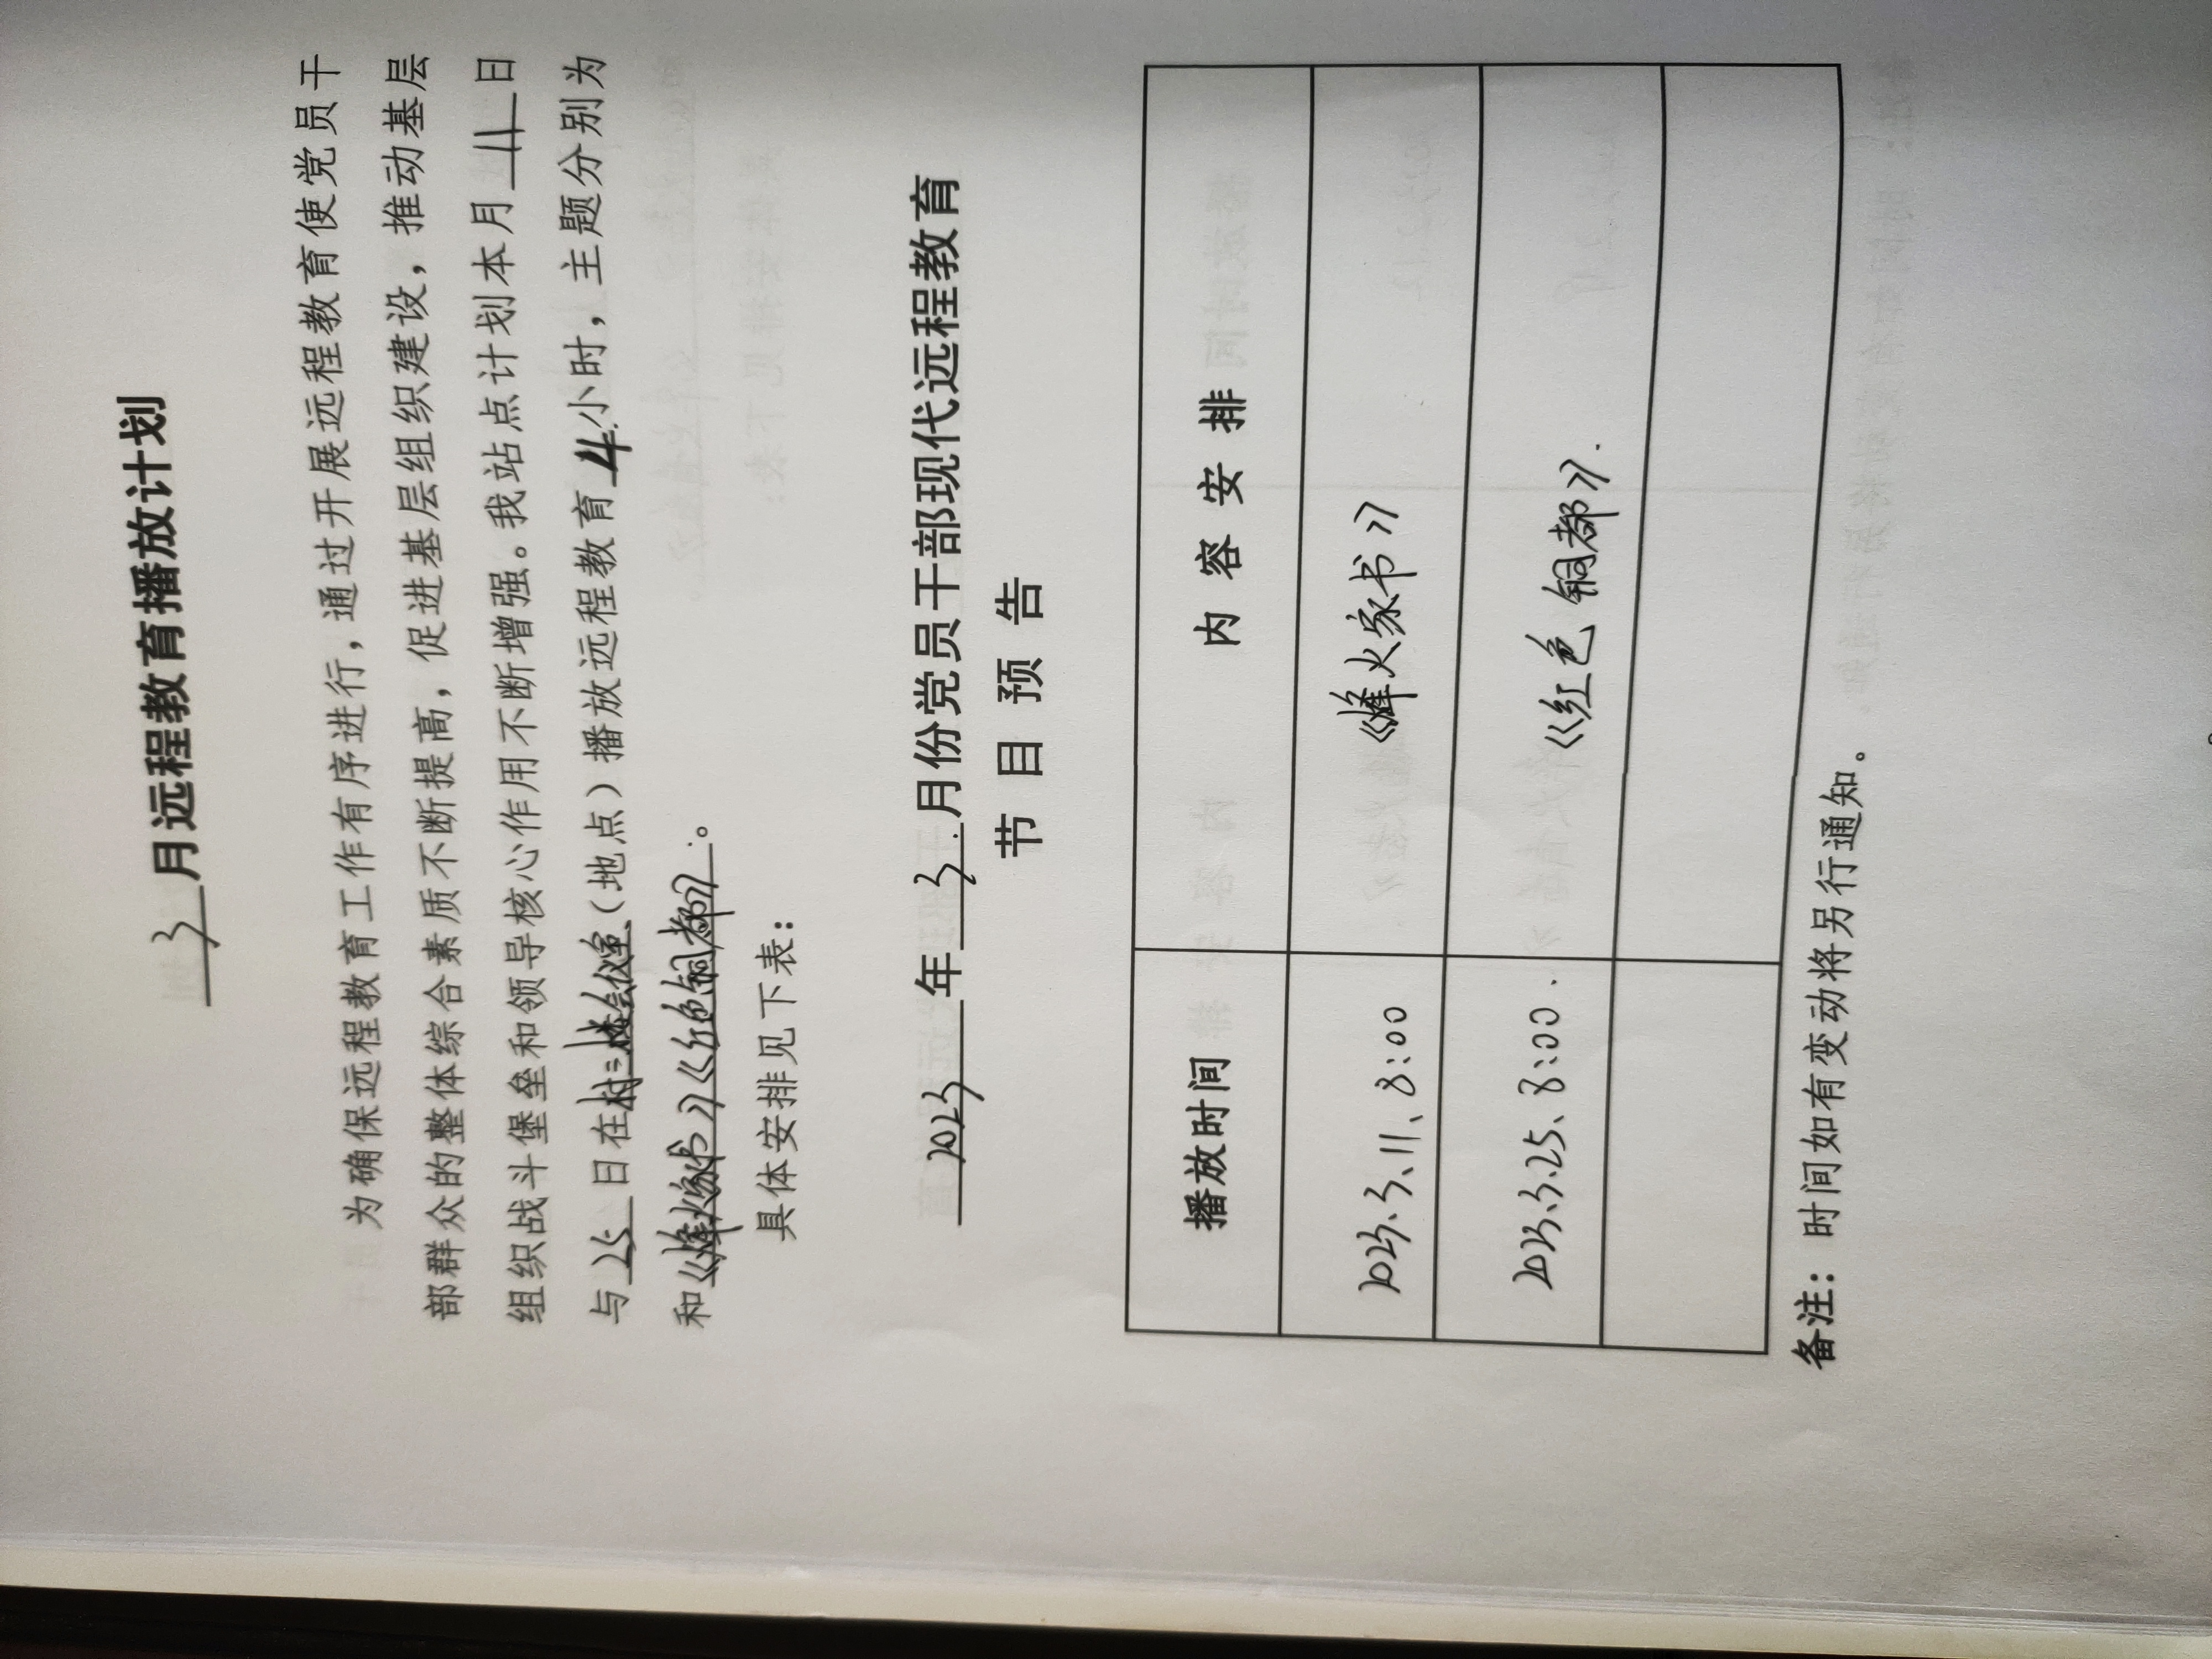 3月远程教育播放计划
为确保远程教育工作有序进行，通过开展远程教育使党员干
部群众的整体综合素质不断提高，促进基层组织建设，推动基层
组织战斗堡垒和领导核心作用不断增强。我站点计划本月11日
与25日在村三楼会议室（地点）播放远程教育4小时，主题分别为
和《烽火家书》《红色铜都》。
具体安排见下表：
2023年3月份党员干部现代远程教育
节目预告
播放时间 内容安排
2023、3、11、8:00 《烽火家书》
2023、3、25、8:00. 《红色铜都》.
备注：时间如有变动将另行通知。